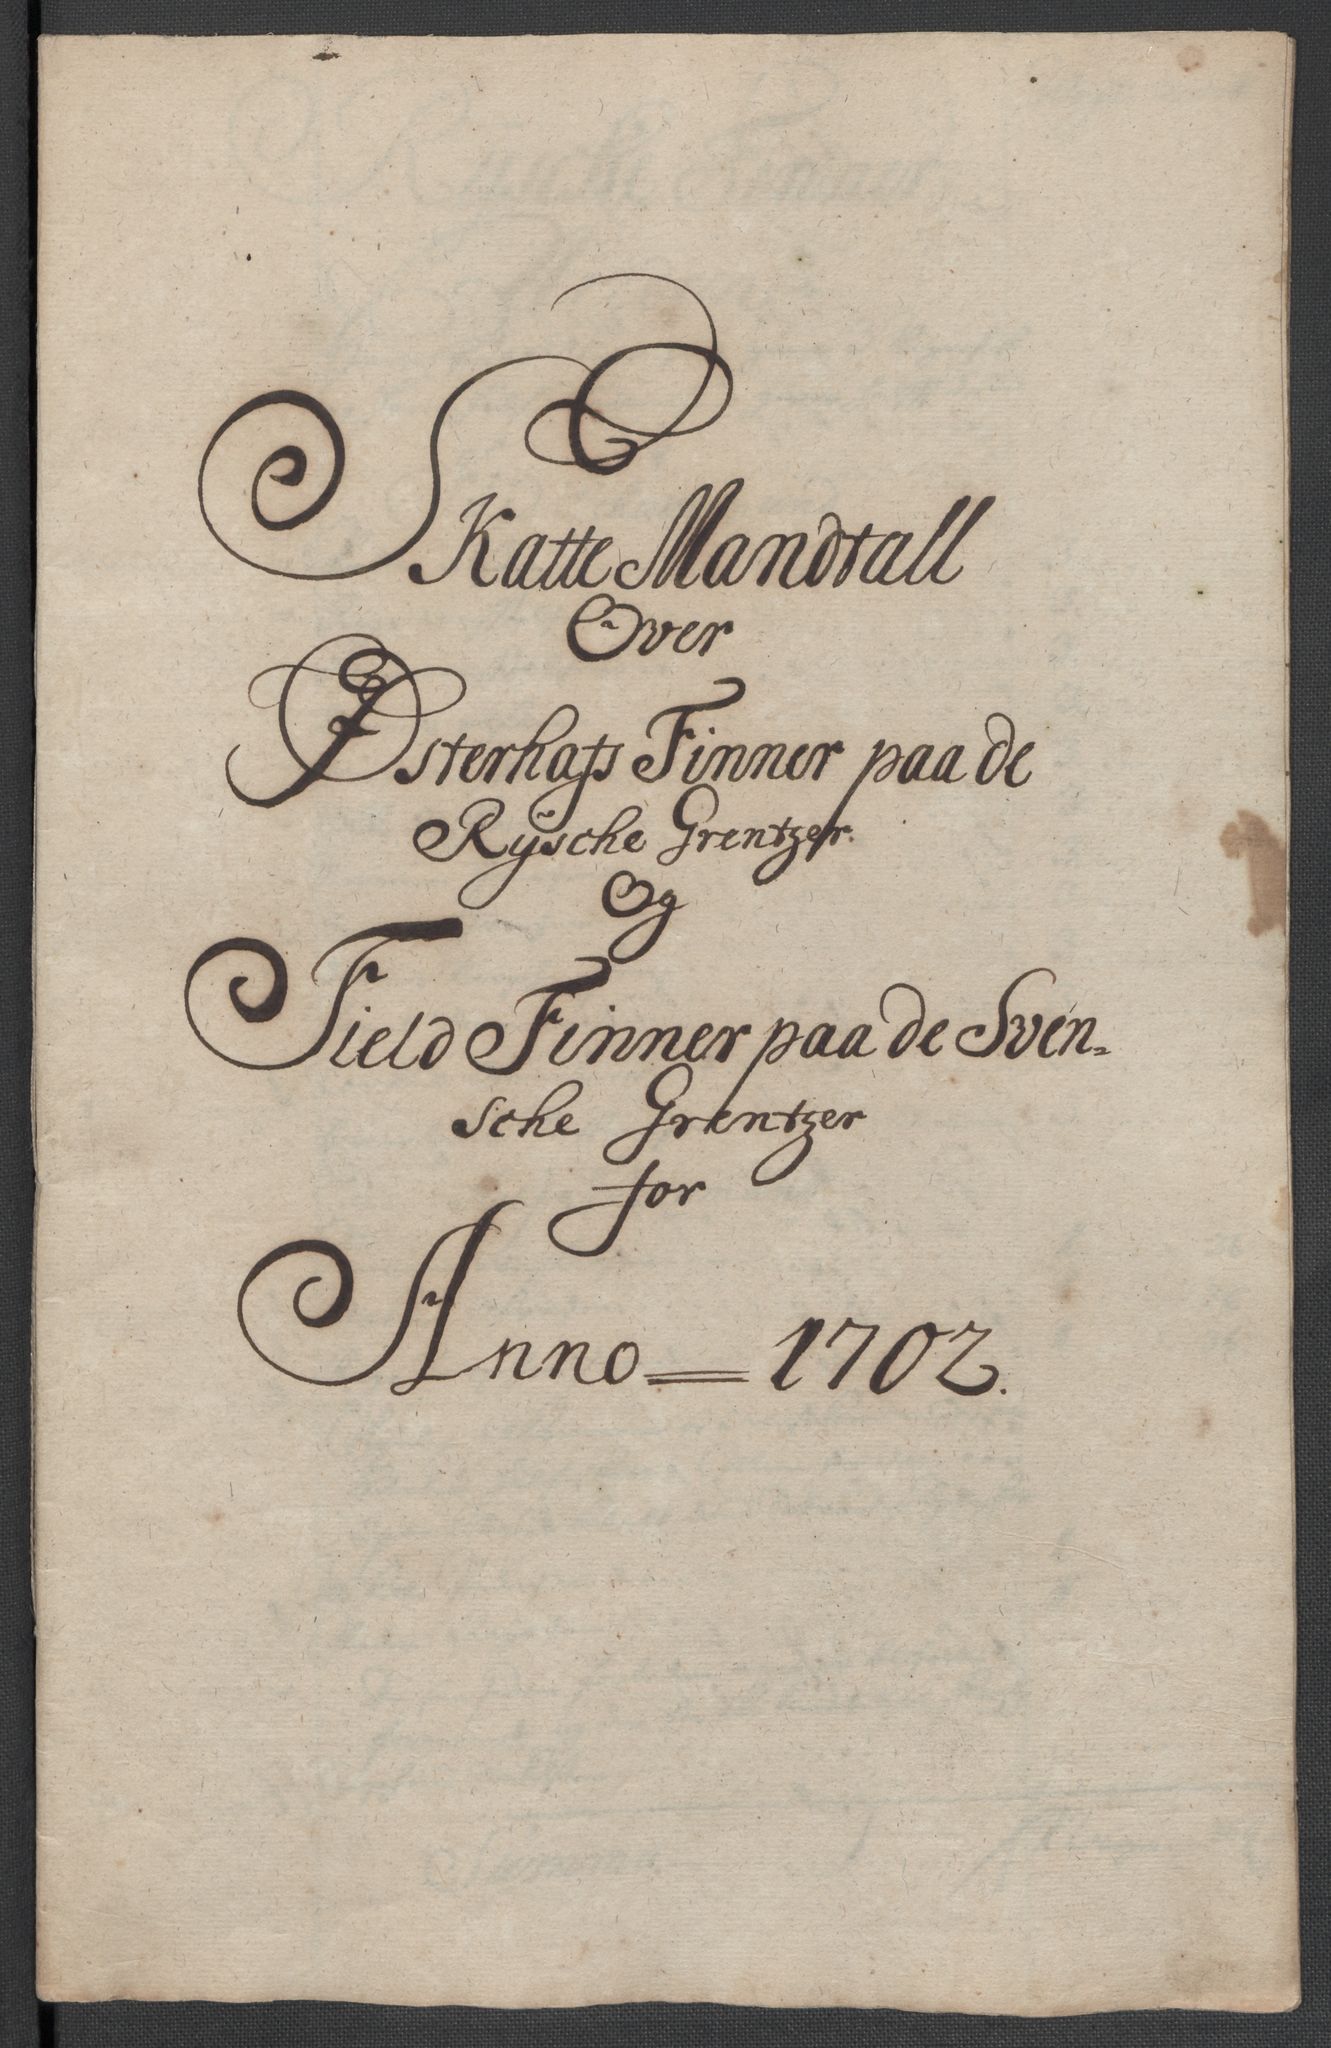 Skatte Mandtall
Over
Østerhafs Finner paa de
Rÿsche Grentzer.
Og
Field Finner paa de Sven-
sche Grentzer
for
Anno = 1702.